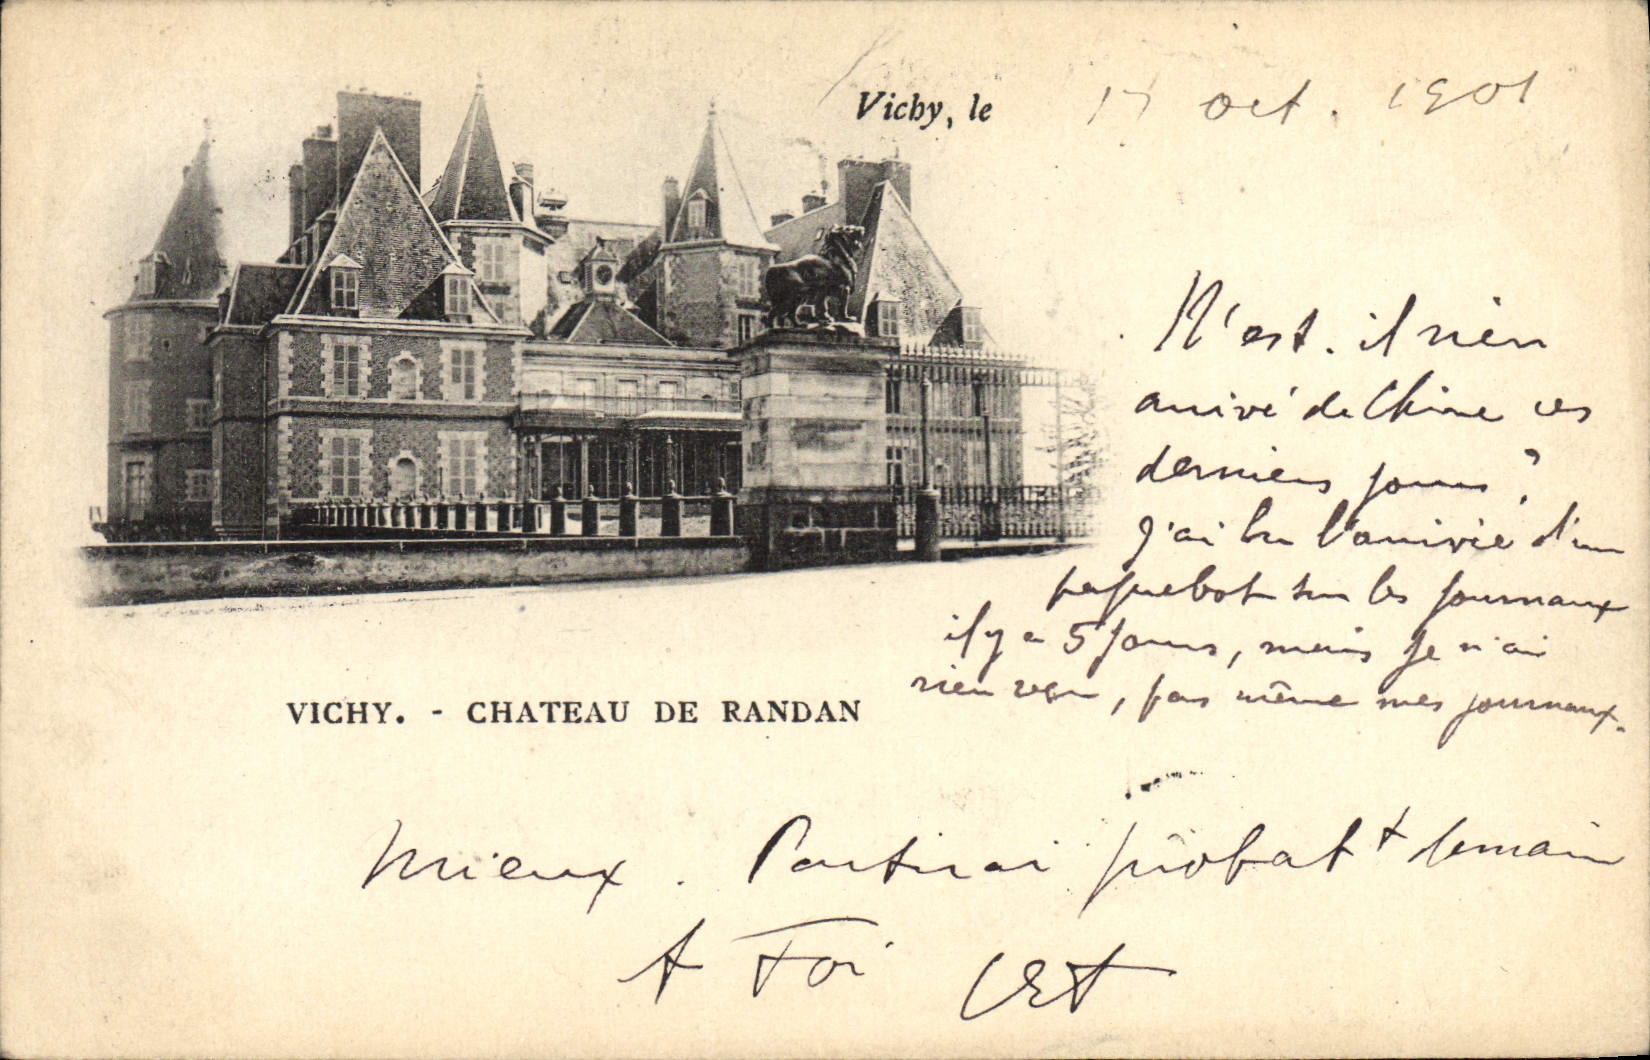 Vichy, le 17 oct. 1901
N'est-il rien
arrivé de Chine ces
derniers jours ?
J'ai lu l'arrivée d'un
paquebot sur les journaux
il y a 5 jours, mais je n'ai
rien reçu, pas même mes journaux.
VICHY. - CHATEAU DE RANDAN
Mieux. Partirai probabt demain
A Toi